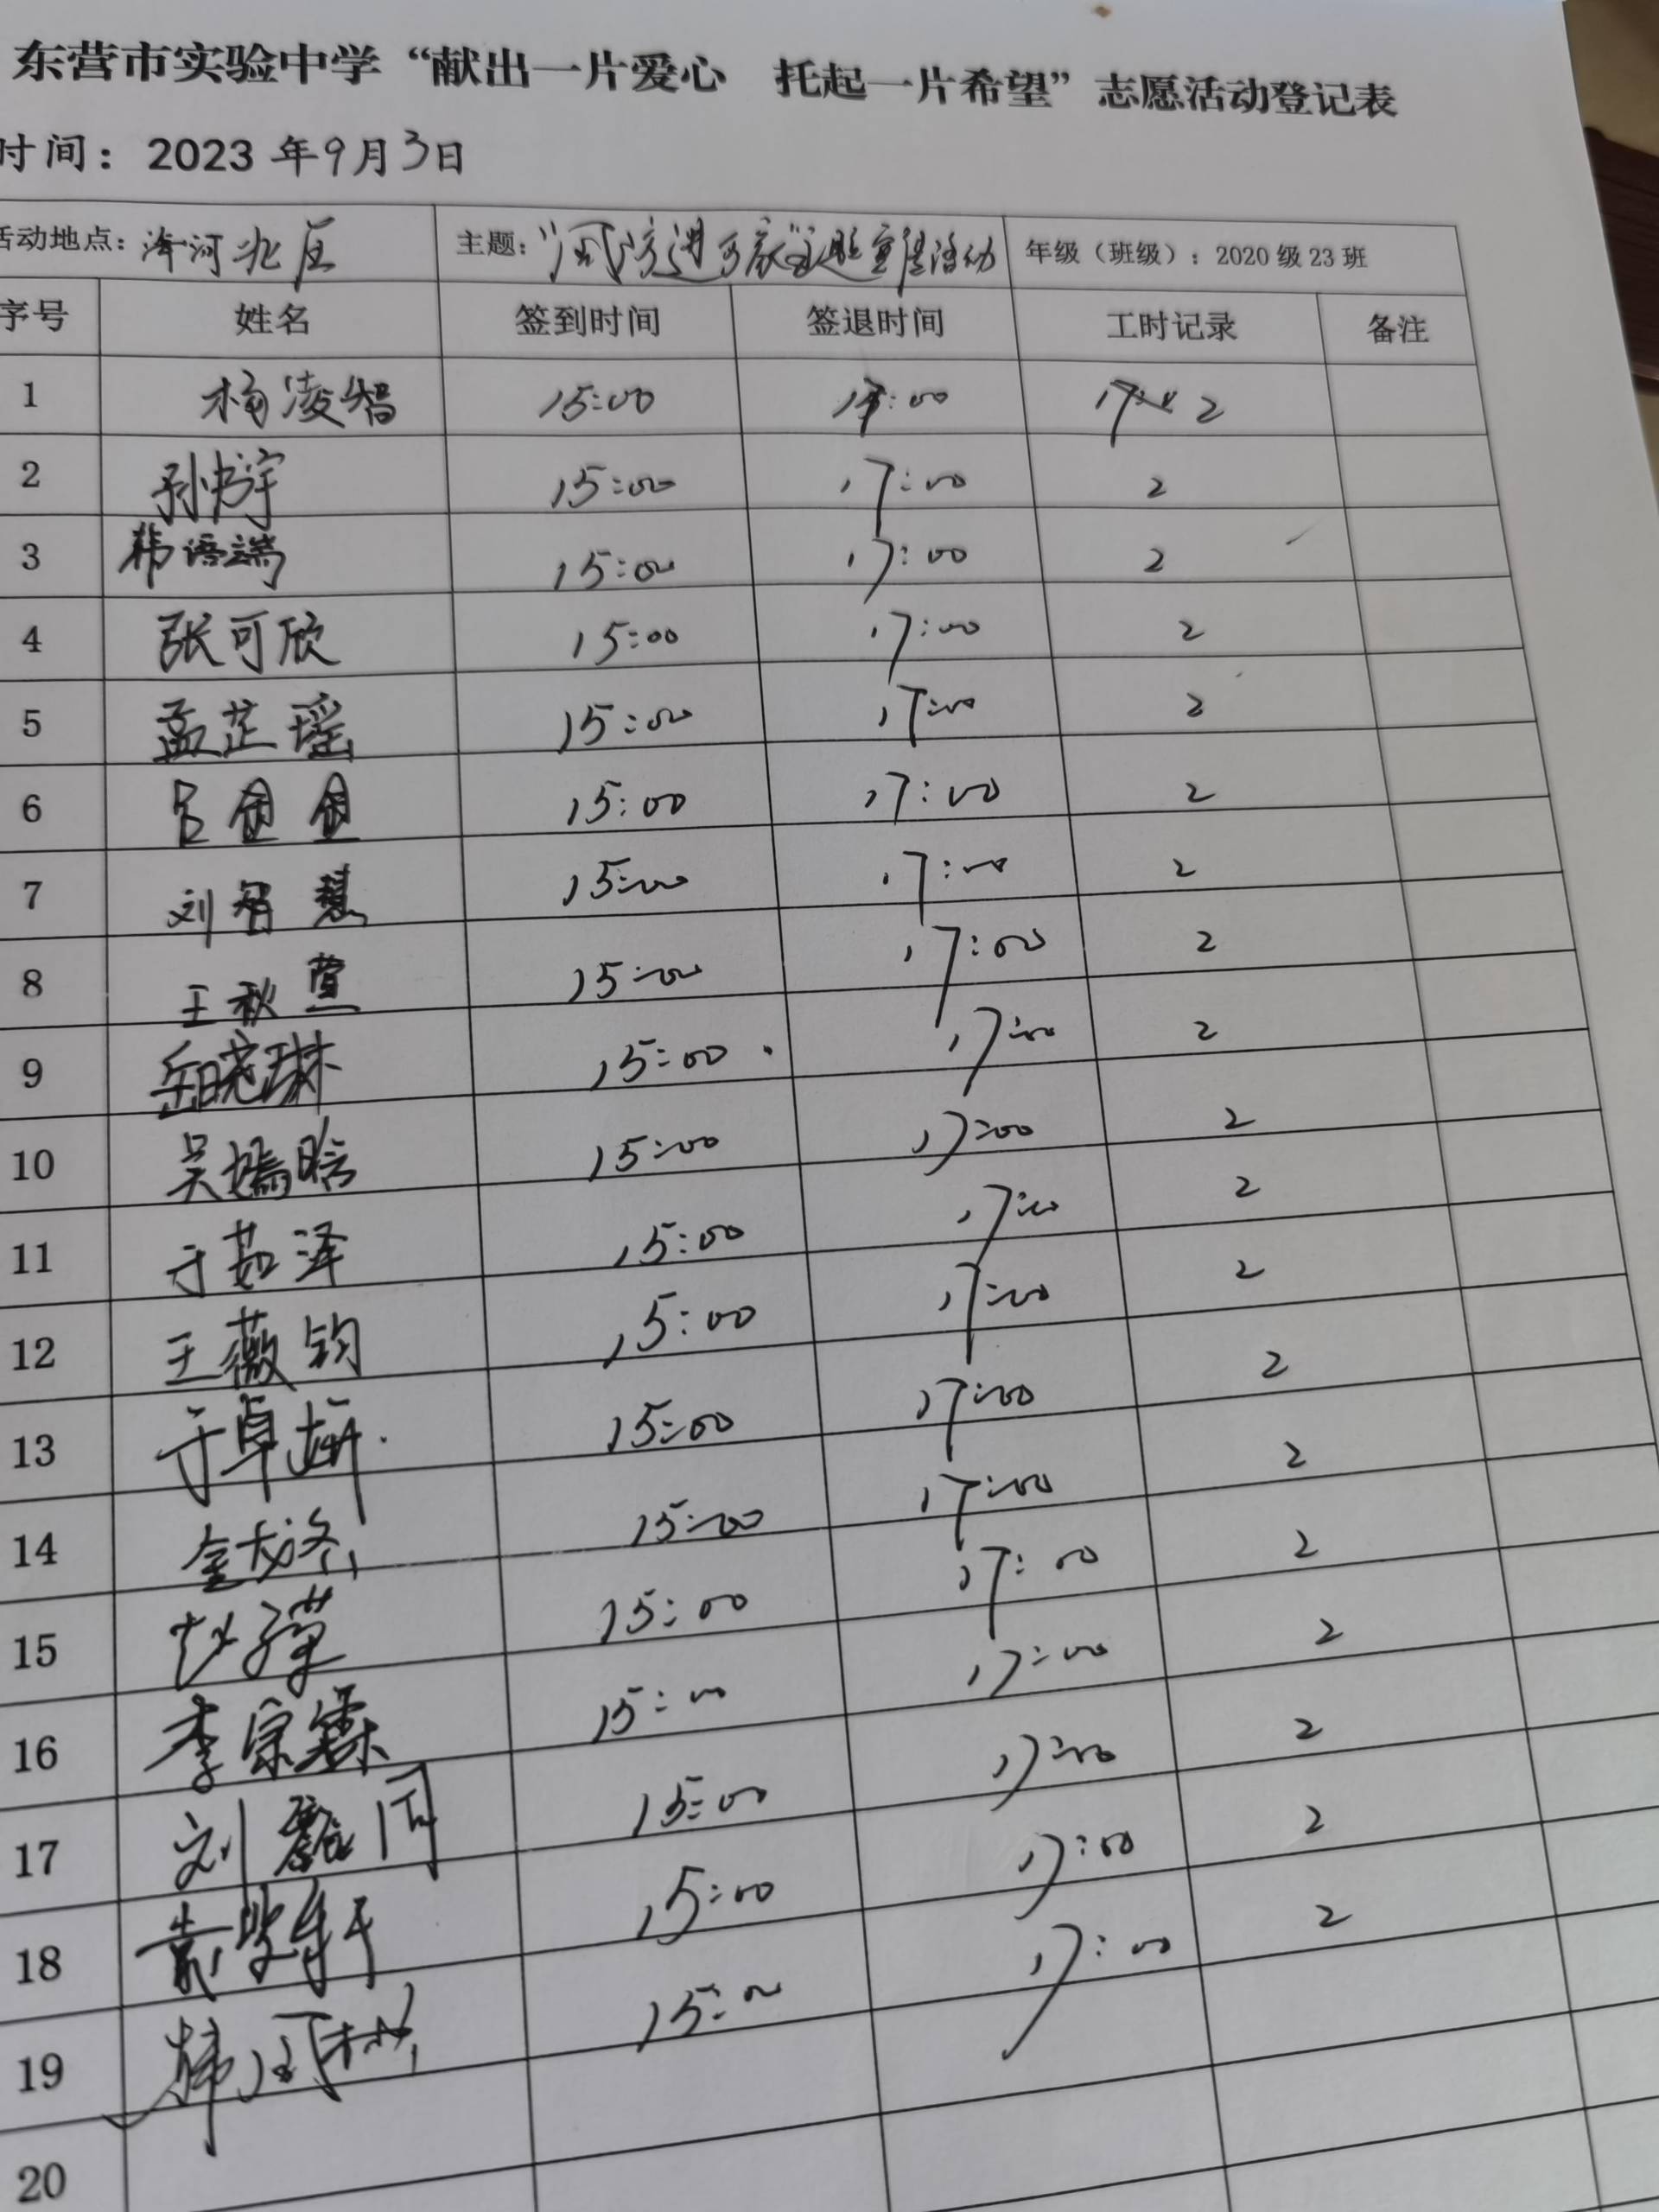 东营市实验中学“献出一片爱心 托起一片希望”志愿活动登记表
时间：2023年9月3日
活动地点： 河北区 主题： 进 主题宣传活动 年级（班级）：2020级23班
序号 姓名 签到时间 签退时间 工时记录 备注
1 杨凌智 15:00 17:00 2
2 孙 宇 15:00 17:00 2
3 韩语端 15:00 17:00 2
4 张可欣 15:00 17:00 2
5 孟芷瑶 15:00 17:00 2
6 吕 15:00 17:00 2
7 刘智慧 15:00 17:00 2
8 王秋萱 15:00 17:00 2
9 岳晓琳 15:00 17:00 2
10 吴嫣晗 15:00 17:00 2
11 于茹泽 15:00 17:00 2
12 王薇钧 15:00 17:00 2
13 于卓妍 15:00 17:00 2
14 15:00 17:00 2
15 赵 15:00 17:00 2
16 李宗霖 15:00 17:00 2
17 刘 15:00 17:00 2
18 袁 轩 15:00 17:00 2
19 韩 15:00 17:00 2
20